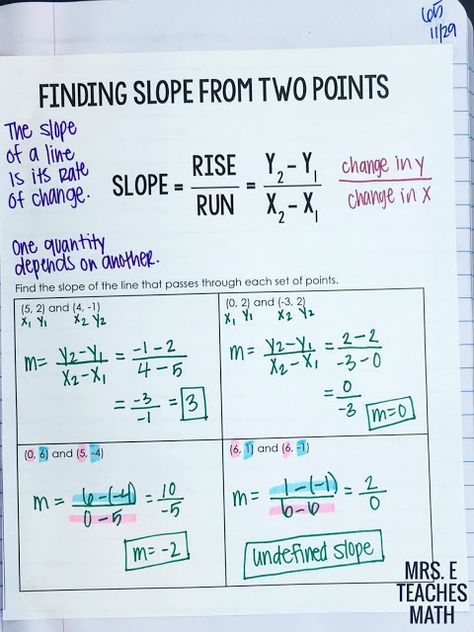 65
11/29
FINDING SLOPE FROM TWO POINTS
The slope
of a line
is its rate
of change.
SLOPE = RISE/RUN = (Y₂ - Y₁)/(X₂ - X₁) change in y/change in x
One quantity
depends on another.
Find the slope of the line that passes through each set of points.
(5, 2) and (4, -1)
X₁ Y₁ X₂ Y₂
m = (Y₂ - Y₁)/(X₂ - X₁) = (-1 - 2)/(4 - 5)
= -3/-1 = 3
(0, 2) and (-3, 2)
X₁ Y₁ X₂ Y₂
m = (Y₂ - Y₁)/(X₂ - X₁) = (2 - 2)/(-3 - 0)
= 0/-3 m=0
(0, 6) and (5, -4)
m = (6 - (-4))/(0 - 5) = 10/-5
m = -2
(6, 1) and (6, -1)
m = (1 - (-1))/(6 - 6) = 2/0
undefined slope
MRS. E
TEACHES
MATH